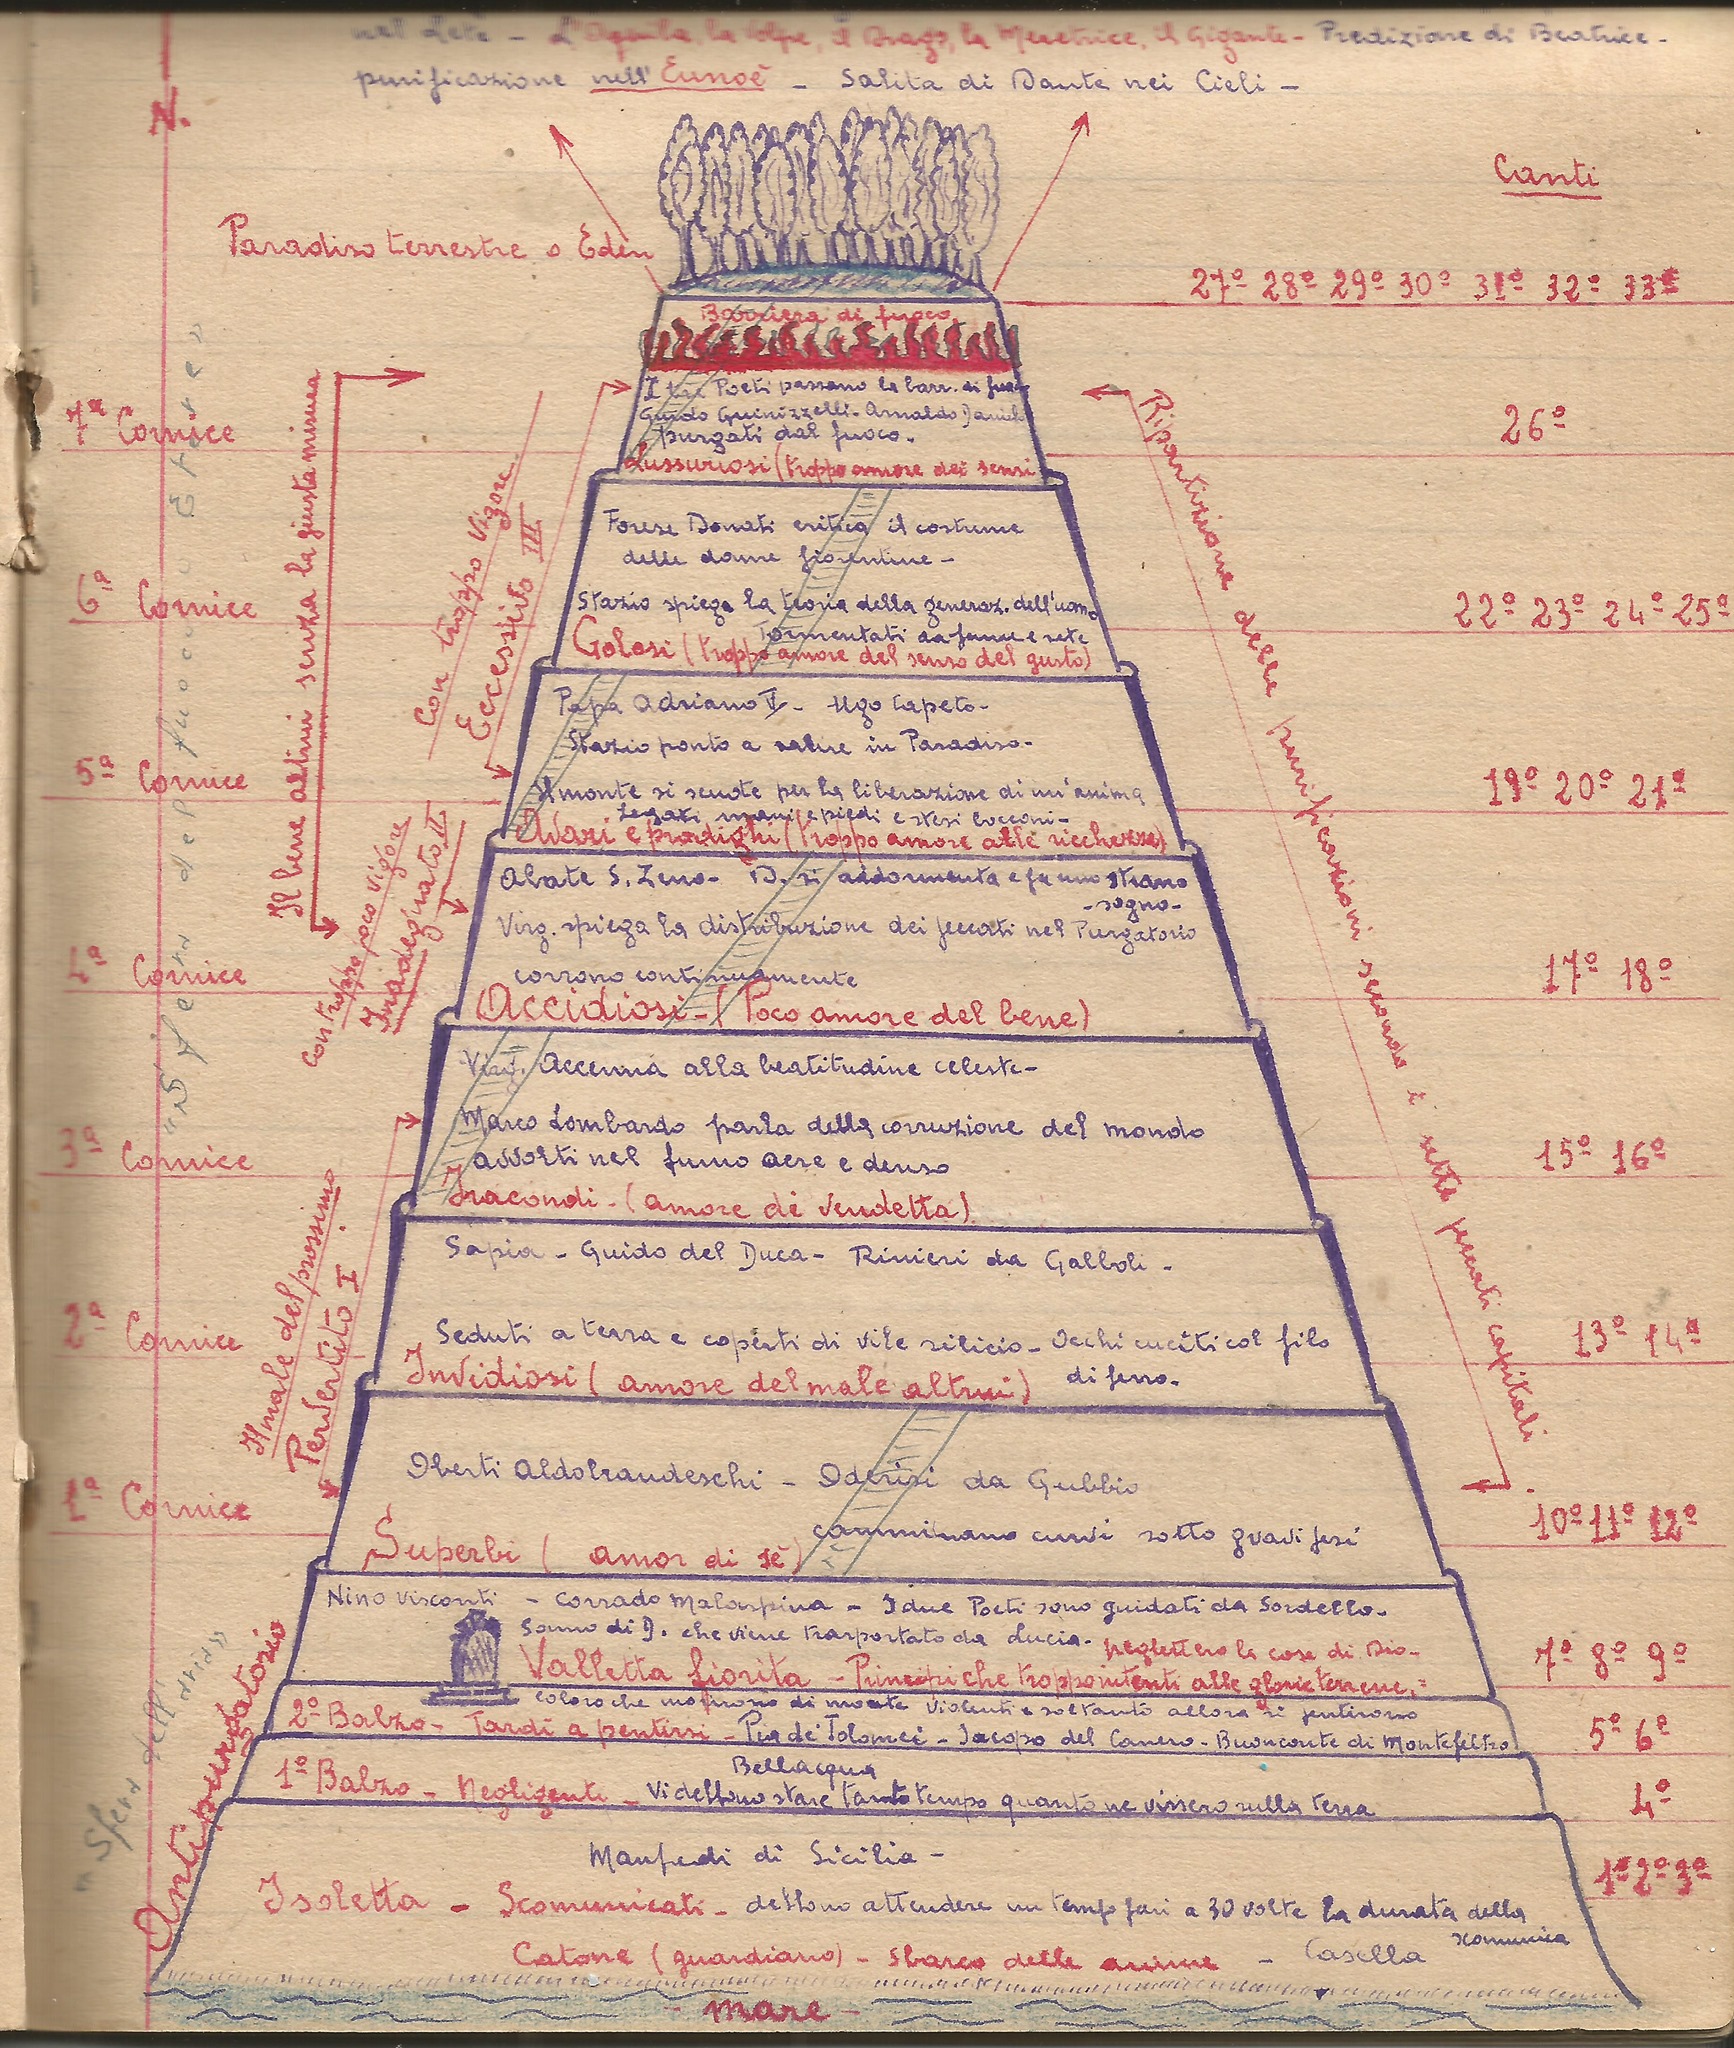 nel Letè – L'Aquila, la Volpe, il Drago, la Meretrice, il Gigante – Predizione di Beatrice –
purificazione nell'Eunoè – Salita di Dante nei Cieli –
N.
Canti
Paradiso terrestre o Eden
27º 28º 29º 30º 31º 32º 33º
Barriera di fuoco
I tre Poeti passano la barr. di fuoco
Guido Guinizzelli - Arnaldo Daniello
purgati dal fuoco.
Lussuriosi (troppo amore dei sensi
7ª Cornice
26º
Forese Donati critica il costume
delle donne fiorentine –
Stazio spiega la teoria della generaz. dell'uomo
Tormentati da fame e sete
Golosi (troppo amore del senso del gusto)
6ª Cornice
22º 23º 24º 25º
Papa Adriano V – Ugo Capeto –
Stazio pronto a salire in Paradiso –
Il monte si scuote per la liberazione di un'anima
Legati mani e piedi e stesi bocconi –
Avari e prodighi (troppo amore alle ricchezze)
5ª Cornice
19º 20º 21º
Abate S. Zeno – D. si addormenta e fa uno strano
– sogno –
Virg. spiega la distribuzione dei peccati nel Purgatorio
corrono continuamente
Accidiosi – (Poco amore del bene)
4ª Cornice
17º 18º
Virg. Accenna alla beatitudine celeste –
Marco Lombardo parla della corruzione del mondo
avvolti nel fumo acre e denso
Iracondi – (amore di vendetta)
3ª Cornice
15º 16º
Sapia – Guido del Duca – Rinieri da Galboli –
Seduti a terra e coperti di vile silicio – Occhi cuciti col filo
di ferro –
Invidiosi (amore del male altrui)
2ª Cornice
13º 14º
Oberti Aldobrandeschi – Oderisi da Gubbio
camminano curvi sotto gravi pesi
Superbi (amor di sè)
1ª Cornice
10º 11º 12º
Nino Visconti – Corrado Malaspina – I due Poeti sono guidati da Sordello –
Sonno di D. che viene trasportato da Lucia –
neglettero le cose di Dio –
Valletta fiorita – Principi che troppo intenti alle glorie terrene, =
7º 8º 9º
coloro che morirono di morte violenti e soltanto allora si pentirono
2º Balzo – Tardi a pentirsi – Pia de' Tolomei – Jacopo del Cassero – Buonconte di Montefeltro
5º 6º
Bellacqua
1º Balzo – Negligenti – Vi debbono stare tanto tempo quanto ne vissero sulla terra
4º
Manfredi di Sicilia –
Isoletta – Scomunicati – debbono attendere un tempo pari a 30 volte la durata della
scomunica
1º 2º 3º
Catone (guardiano) – Sbarco delle anime – Casella
– mare –
Antipurgatorio
Il bene altrui senza la giusta misura
Con troppo vigore
Eccessivo III
Con troppo poco vigore
Inadeguato II
Il male del prossimo
Pervertito I
Ripartizione delle purificazioni secondo i sette peccati capitali.
"Sfera del fuoco o Etere"
"Sfera dell'